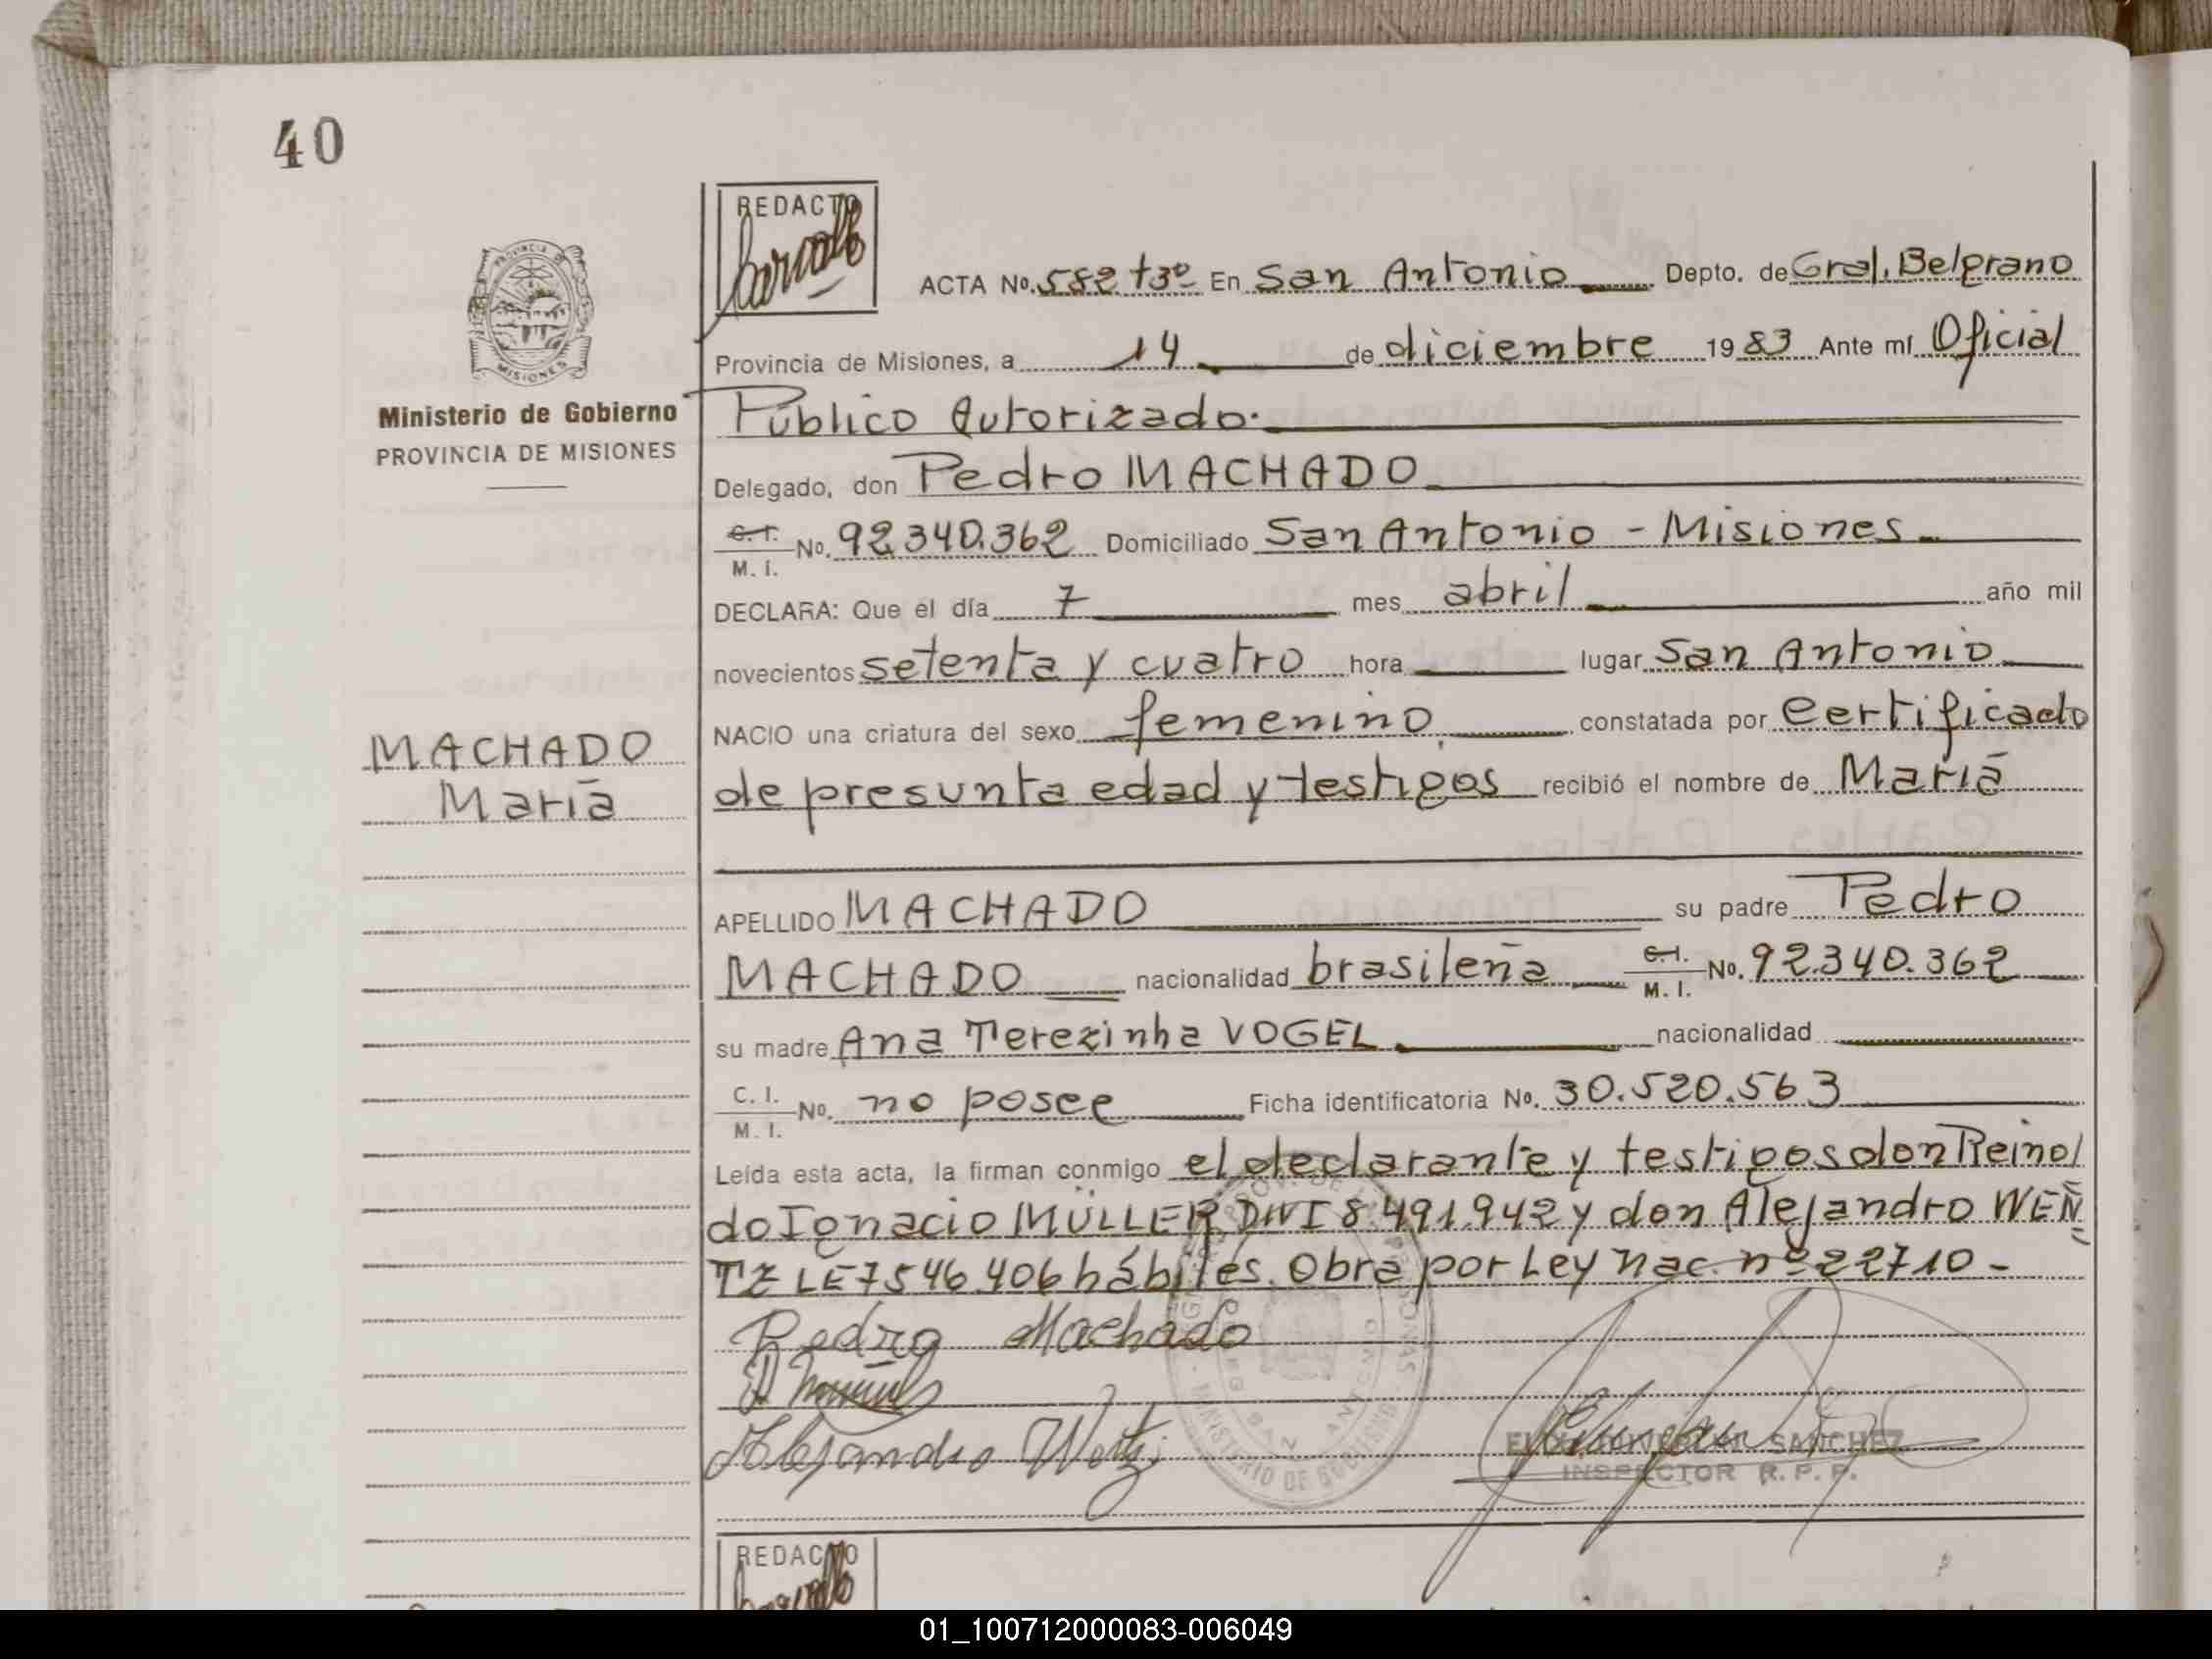 40
REDACTO
ACTA No. 582 T3º En San Antonio Depto. de Gral. Belgrano
Provincia de Misiones, a 14 de diciembre 1983 Ante mí Oficial
Público Autorizado.
PROVINCIA DE MISIONES
Ministerio de Gobierno
PROVINCIA DE MISIONES
Delegado, don Pedro MACHADO
C. I.
M. I. No. 92.340.362 Domiciliado San Antonio - Misiones
DECLARA: Que el día 7 mes abril año mil
novecientos setenta y cuatro hora lugar San Antonio
NACIO una criatura del sexo femenino constatada por certificado
MACHADO
María
de presunta edad y testigos recibió el nombre de María
APELLIDO MACHADO su padre Pedro
MACHADO nacionalidad brasileña C. I. M. I. No. 92.340.362
su madre Ana Terezinha VOGEL nacionalidad
C. I.
M. I. No. no posee Ficha identificatoria No. 30.520.563
Leída esta acta, la firman conmigo el declarante y testigos don Reinol
do Ignacio MÜLLER DNI 8.491.942 y don Alejandro WEÑ
TZ LE 7546.406 hábiles. Obra por Ley nac. nº 22710 -
Pedro Machado
Alejandro
SANCHEZ
INSPECTOR R. P. P.
MINISTERIO DE GOBIERNO
SAN ANTONIO
REDACTO
01_100712000083-006049